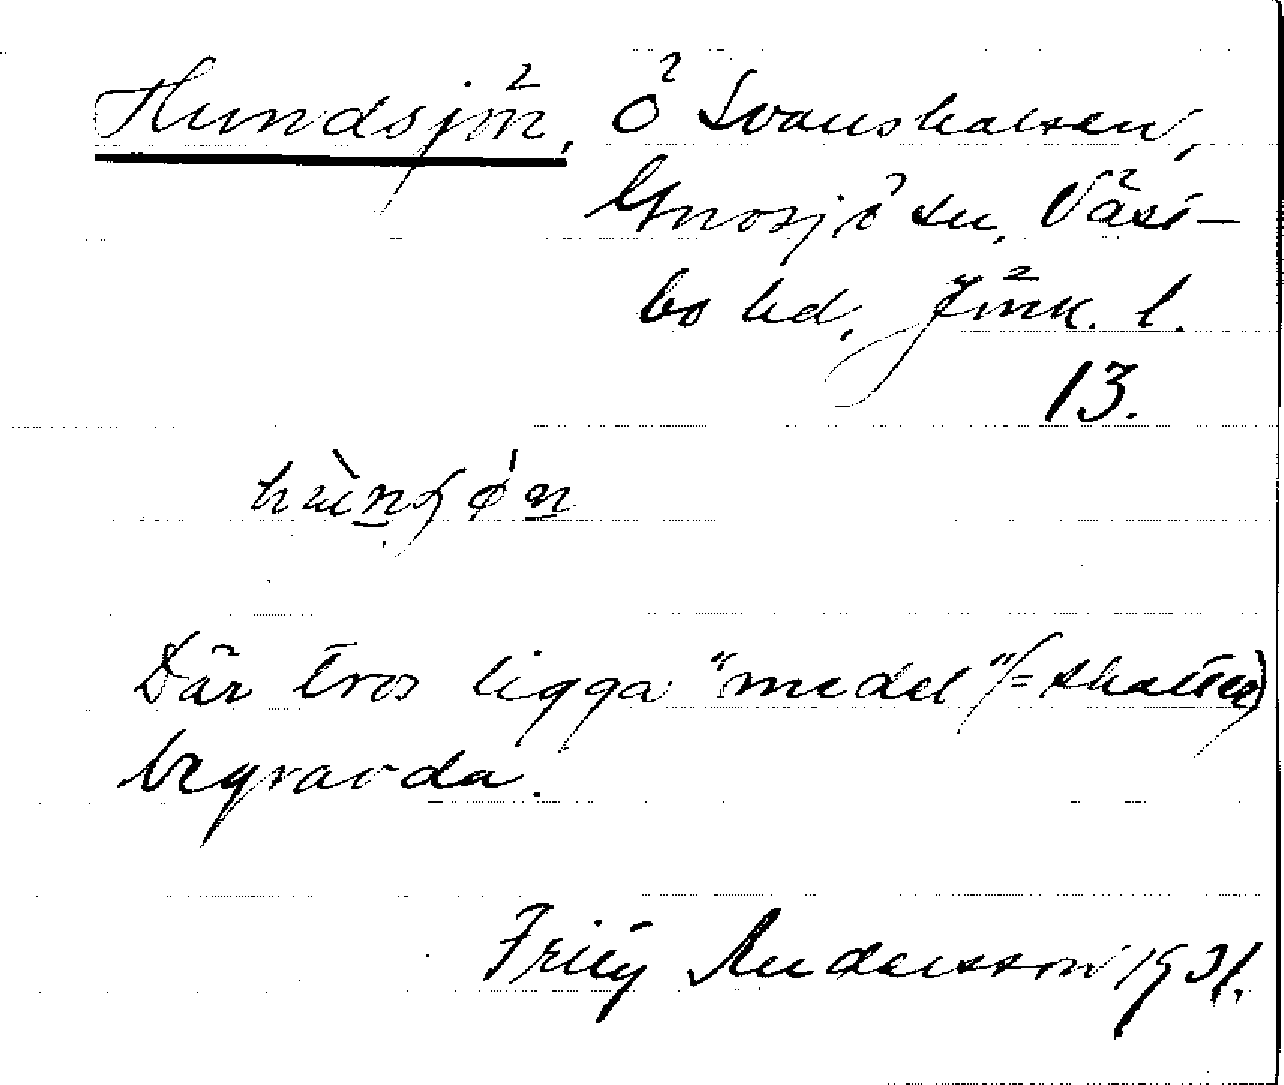 Hundsjön, Ö Svanshalsen,
Gnosjö sn, Väst-
bo hd, Jönk. l.
13.
Där tros ligga "medel" (= skatter)
begravda.
Fritz Andersson 1931.